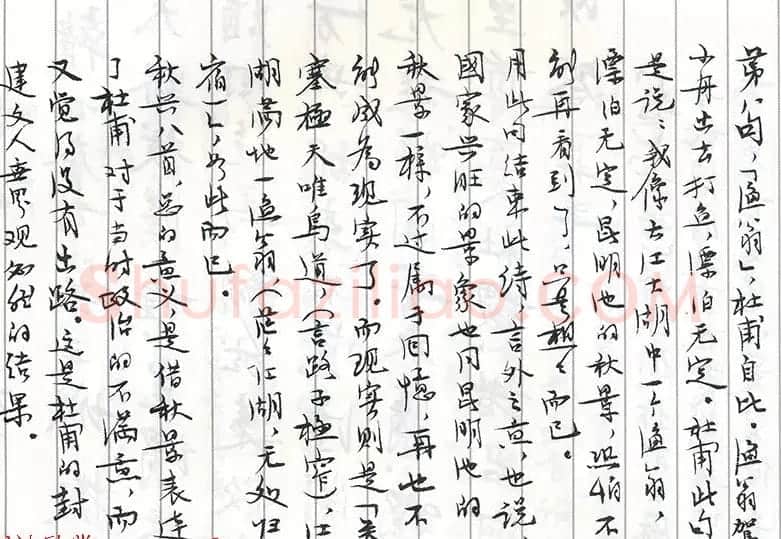 第八句,「渔翁」,杜甫自比。渔翁驾
小舟出去打鱼,漂泊无定。杜甫此句
是说:我像大江大湖中一个渔翁,
漂泊无定,昆明池的秋景,恐怕不
能再看到了,只是想想而已。
用此句结束此诗,言外之意,也说
国家兴旺的景象也同昆明池的
秋景一样,不过属于回忆,再也不
能成为现实了。而现实则是「关
塞極天唯鸟道」(言路子極窄),江
湖满地一渔翁(茫茫江湖,无处归
宿)」,如此而已。
秋兴八首,总的意义,是借秋景表达
了杜甫对于当时政治的不满意,而
又觉得没有出路。这是杜甫的封
建文人世界观必然的结果。
Shufaziliao.com